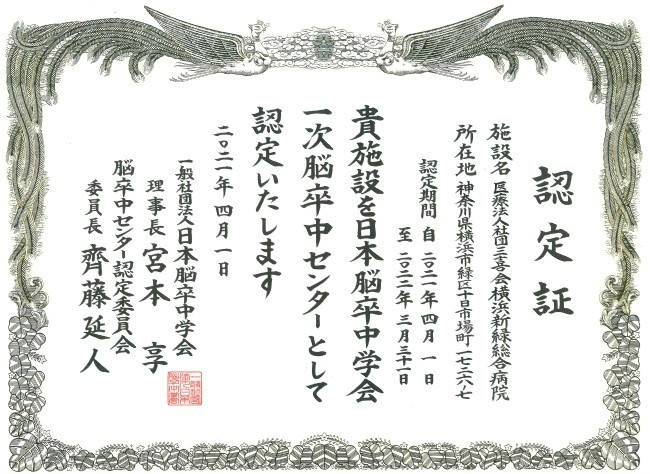 認定証
施設名 医療法人社団三喜会横浜新緑総合病院
所在地 神奈川県横浜市緑区十日市場町一七二六ー七
認定期間 自 二〇二一年 四月 一日
至 二〇二二年 三月三十一日
貴施設を日本脳卒中学会
一次脳卒中センターとして
認定いたします
二〇二一年 四月 一日
一般社団法人日本脳卒中学会
理事長 宮本 享
脳卒中センター認定委員会
委員長 齊藤延人